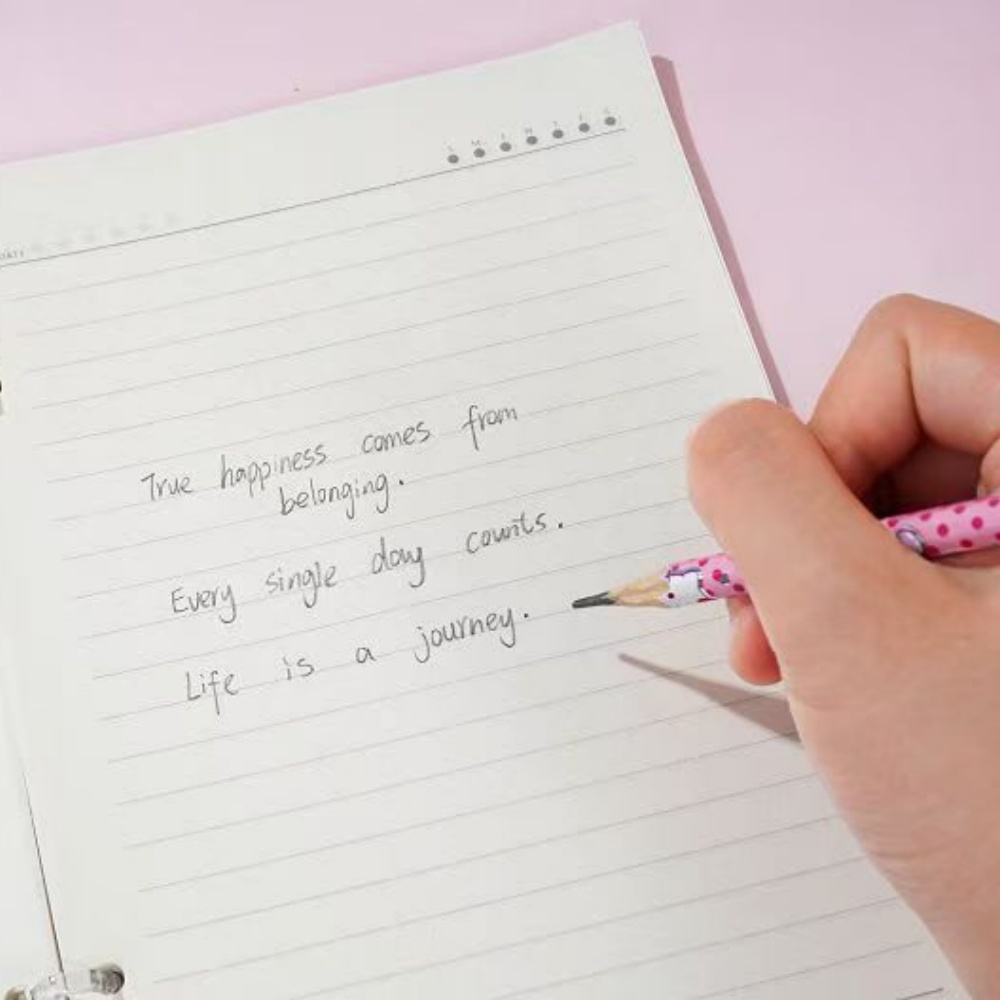 S M T W T F S
True happiness comes from
belonging.
Every single day counts.
Life is a journey.